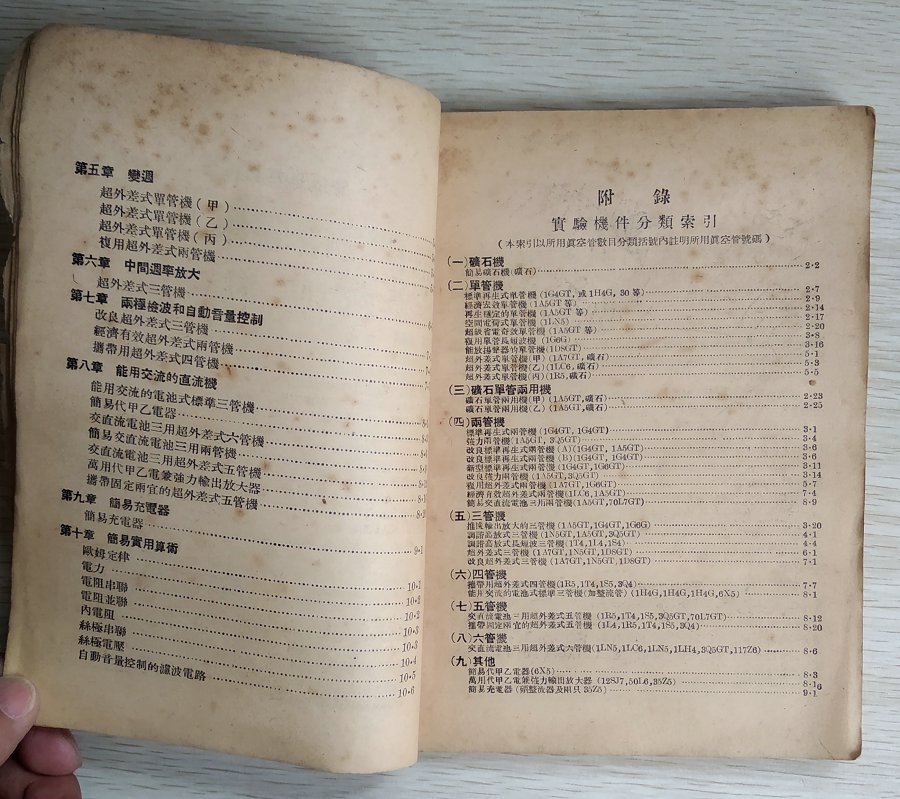 第五章 變週
超外差式單管機(甲)
超外差式單管機(乙)
超外差式單管機(丙)
複用超外差式兩管機
第六章 中間週率放大
超外差式三管機
第七章 兩極檢波和自動音量控制
改良超外差式三管機
經濟有效超外差式兩管機
攜帶用超外差式四管機
第八章 能用交流的直流機
能用交流的電池式標準三管機
簡易代甲乙電器
交直流電池三用超外差式六管機
簡易交直流電池三用兩管機
交直流電池三用超外差式五管機
萬用代甲乙電兼強力輸出放大器
攜帶固定兩宜的超外差式五管機
第九章 簡易充電器
簡易充電器 9·1
第十章 簡易實用算術
歐姆定律
電力 10·1
電阻串聯 10·1
電阻並聯 10·2
內電阻 10·3
絲極串聯 10·4
絲極電壓 10·5
自動音量控制的濾波電路 10·6
附錄
實驗機件分類索引
(本索引以所用眞空管數目分類括號內註明所用眞空管號碼)
(一)礦石機
簡易礦石機(礦石) 2·2
(二)單管機
標準再生式單管機(1G4GT, 或1H4G, 30 等) 2·7
經濟宏效單管機(1A5GT等) 2·9
再生穩定的單管機(1A5GT 等) 2·14
空間電荷式單管機(1LN5) 2·17
超級省電奇效單管機(1A5GT 等) 2·20
複用單管長短波機(1G6G) 3·8
能放揚聲器的單管機(1D8GT) 3·16
超外差式單管機(甲)(1A7GT, 礦石) 5·1
超外差式單管機(乙)(1LC6, 礦石) 5·3
超外差式單管機(丙)(1R5, 礦石) 5·5
(三)礦石單管兩用機
礦石單管兩用機(甲)(1A5GT, 礦石) 2·23
礦石單管兩用機(乙)(1A5GT, 礦石) 2·25
(四)兩管機
標準再生式兩管機(1G4GT, 1G4GT) 3·1
強力兩管機(1A5GT, 3Q5GT) 3·4
改良標準再生式兩管機(A)(1G4GT, 1A5GT) 3·6
改良標準再生式兩管機(B)(1G4GT, 1G4GT) 3·6
新型標準再生式兩管機(1G4GT,1G6GT) 3·11
改良強力兩管機(1A5GT, 3Q5GT) 3·14
複用超外差式兩管機(1A7GT, 1G6GT) 5·7
經濟有效超外差式兩管機(1LC6, 1A5GT) 7·4
簡易交直流電池三用兩管機(1A5GT,70L7GT) 8·9
(五)三管機
推挽輸出放大的三管機(1A5GT, 1G4GT, 1G6G) 3·20
調諧高放式三管機(1N5GT, 1A5GT, 3Q5GT) 4·1
調諧高放式長短波三管機(1T4, 1L4, 1S4) 4·4
超外差式三管機(1A7GT, 1N5GT, 1D8GT) 6·1
改良超外差式三管機(1A7GT, 1N5GT, 1D8GT) 7·1
(六)四管機
攜帶用超外差式四管機(1R5, 1T4, 1S5, 3Q4) 7·7
能用交流的電池式標準三管機(加整流管)(1H4G, 1H4G, 1H4G, 6X5) 8·1
(七)五管機
交直流電池三用超外差式五管機(1R5, 1T4, 1S5, 3Q5GT, 70L7GT) 8·12
攜帶固定兩宜的超外差式五管機(1L4, 1R5, 1T4, 1S5, 3Q4) 8·20
(八)六管機
交直流電池三用超外差式六管機(1LN5, 1LC6, 1LN5, 1LH4, 3Q5GT, 117Z6) 8·6
(九)其他
簡易代甲乙電器(6X5) 8·3
萬用代甲乙電兼強力輸出放大器(12SJ7, 50L6, 35Z5) 8·16
簡易充電器(鎢整流器及兩只35Z5) 9·1